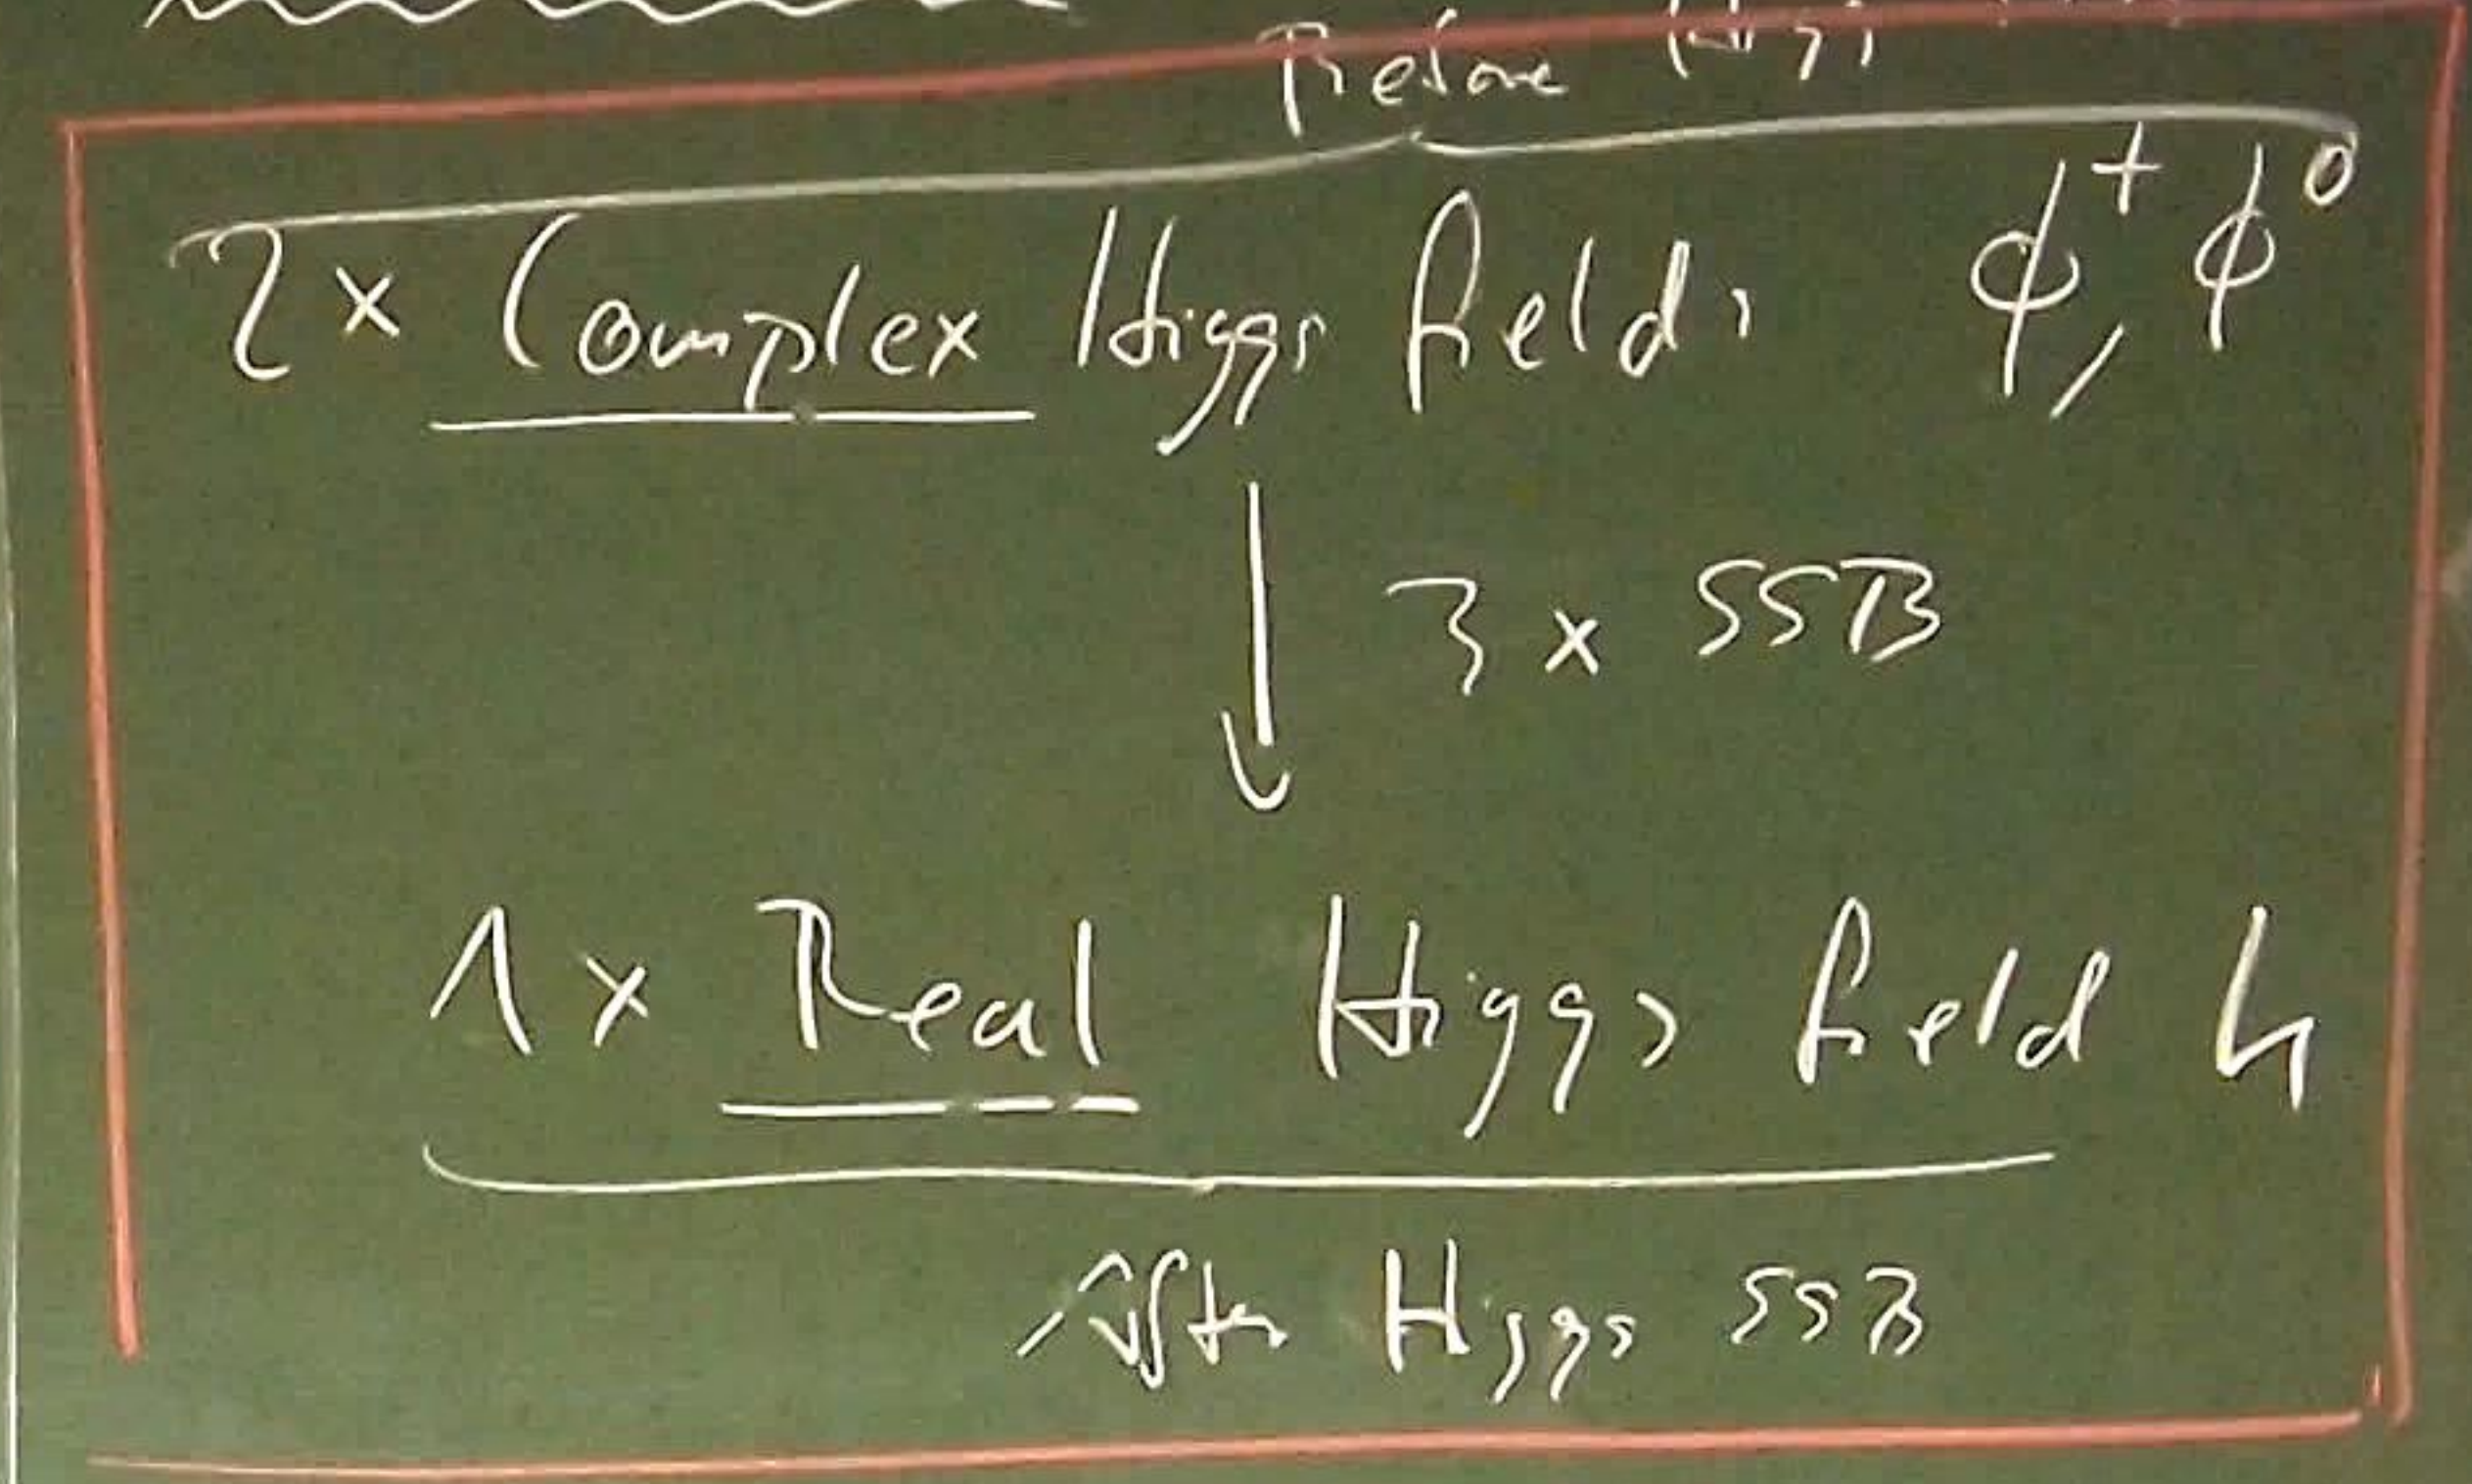 Before Higgs
2 x Complex Higgs fields ϕ⁺, ϕ⁰
3 x SSB
1 x Real Higgs field h
After Higgs SSB